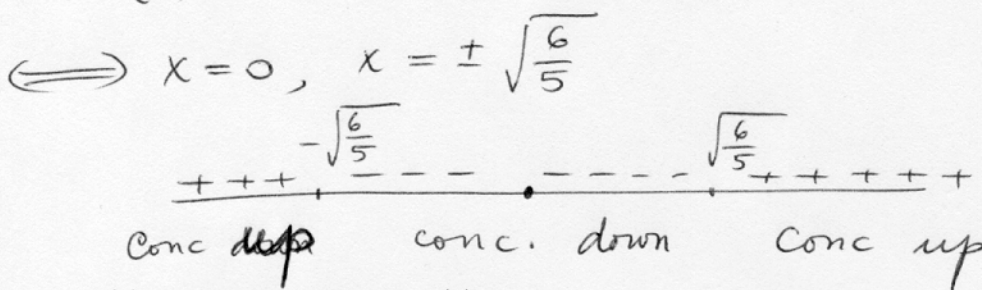 ⟺ x = 0, x = ± √(6/5)
-√(6/5) √(6/5)
+ + + - - - - - - - + + + + +
Conc up conc. down Conc up